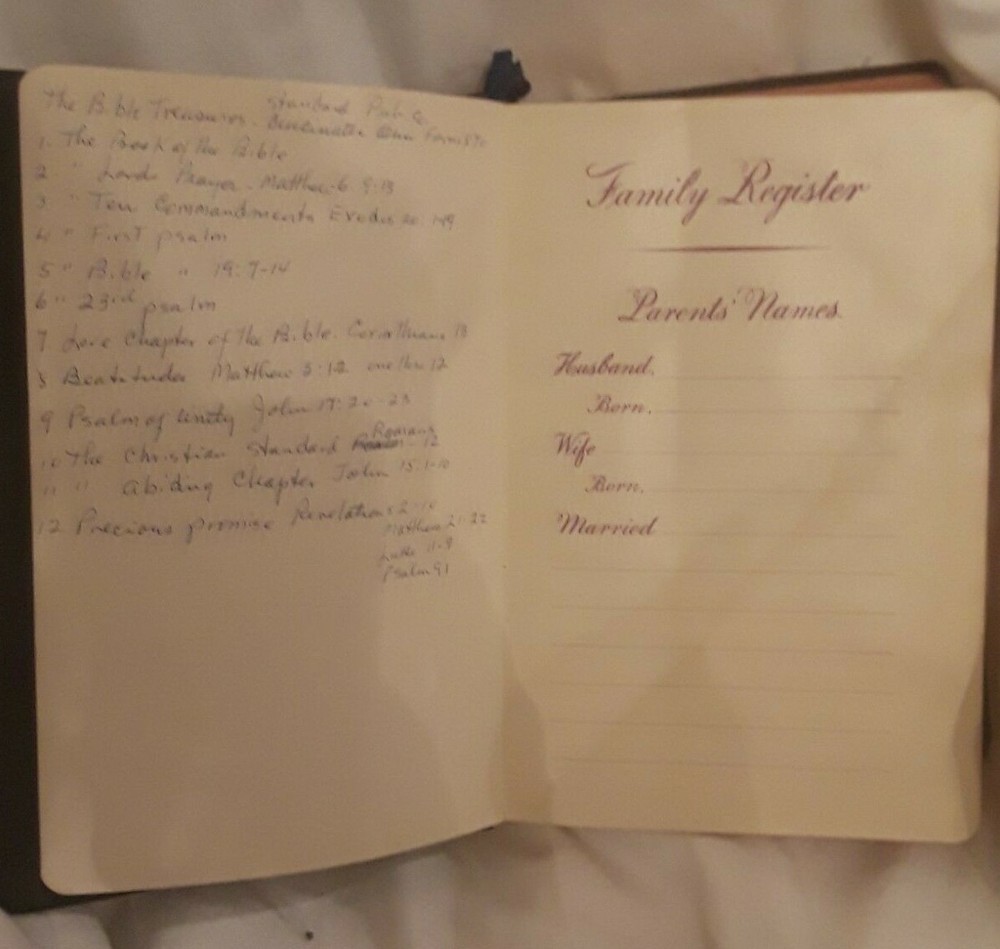 The Bible Treasures. Standard Pub Co.
Cincinnati
1. The Book of the Bible
2 " Lords Prayer. Matthew 6 9-13
3 " Ten Commandments Exodus 20
4 " First psalm
5 " Bible " 19:7-14
6 " 23rd psalm
7 Love Chapter of the Bible. Corinthians 13
8 Beatitudes Matthew 5-12
9 Psalm of Unity John 17:20-23
10 The Christian Standard Romans - 12
11 " Abiding Chapter John 15:1-10
12 Precious promise Revelations
Matthew
Luke 11-9
Psalm 91
Family Register
Parents' Names.
Husband.
Born.
Wife
Born.
Married